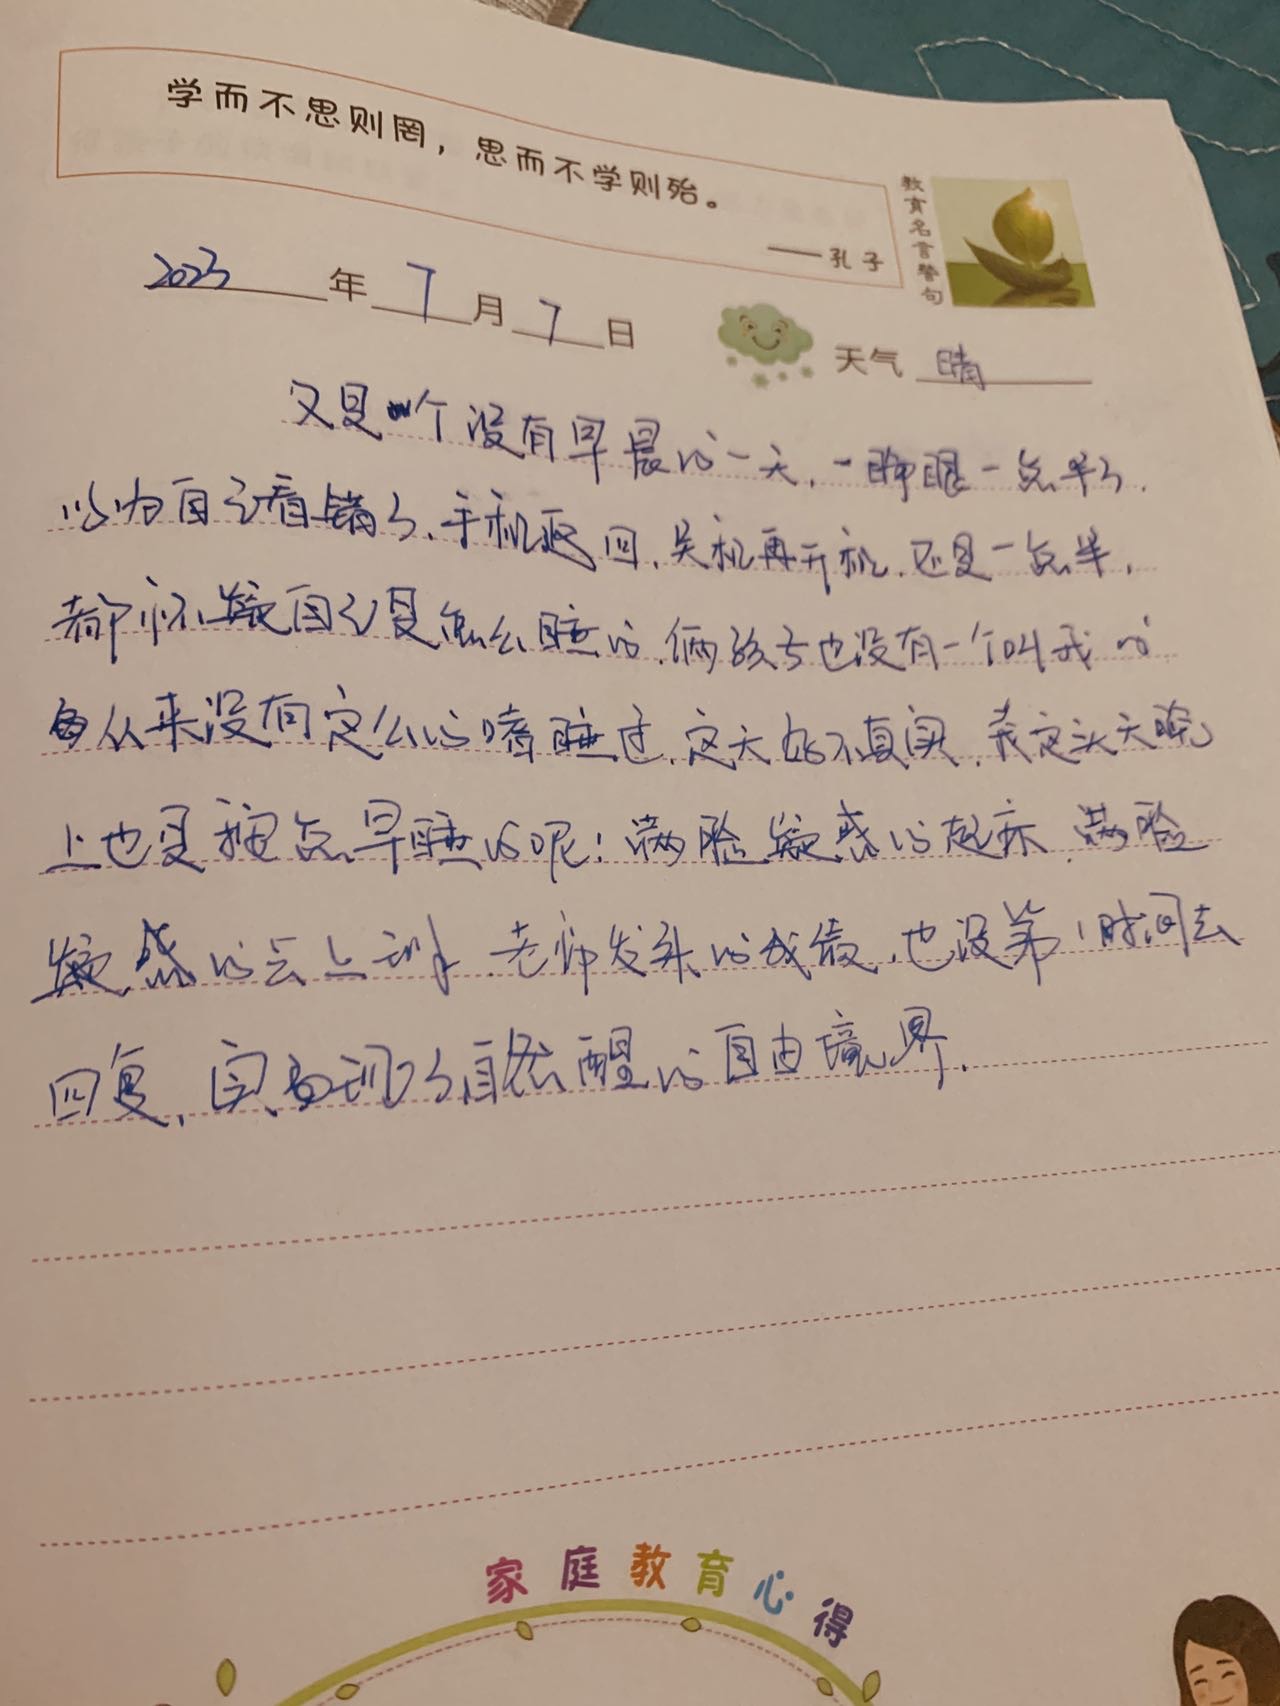 学而不思则罔，思而不学则殆。
——孔子
教育名言警句
2023年7月7日
天气 晴
又是一个没有早晨的一天，一睁眼一点半了，
以为自己看错了，手机返回，关机再开机，还是一点半，
都怀疑自己是怎么睡的，俩孩子也没有一个叫我的
从来没有这么的嗜睡过，这天好不真实，我这头天晚
上也是挺点早睡的呢！满脸疑惑的起床，满脸
疑惑的去上班，老师发来的成绩，也没第1时间去
回复，实现了自然醒的自由境界。
家庭教育心得